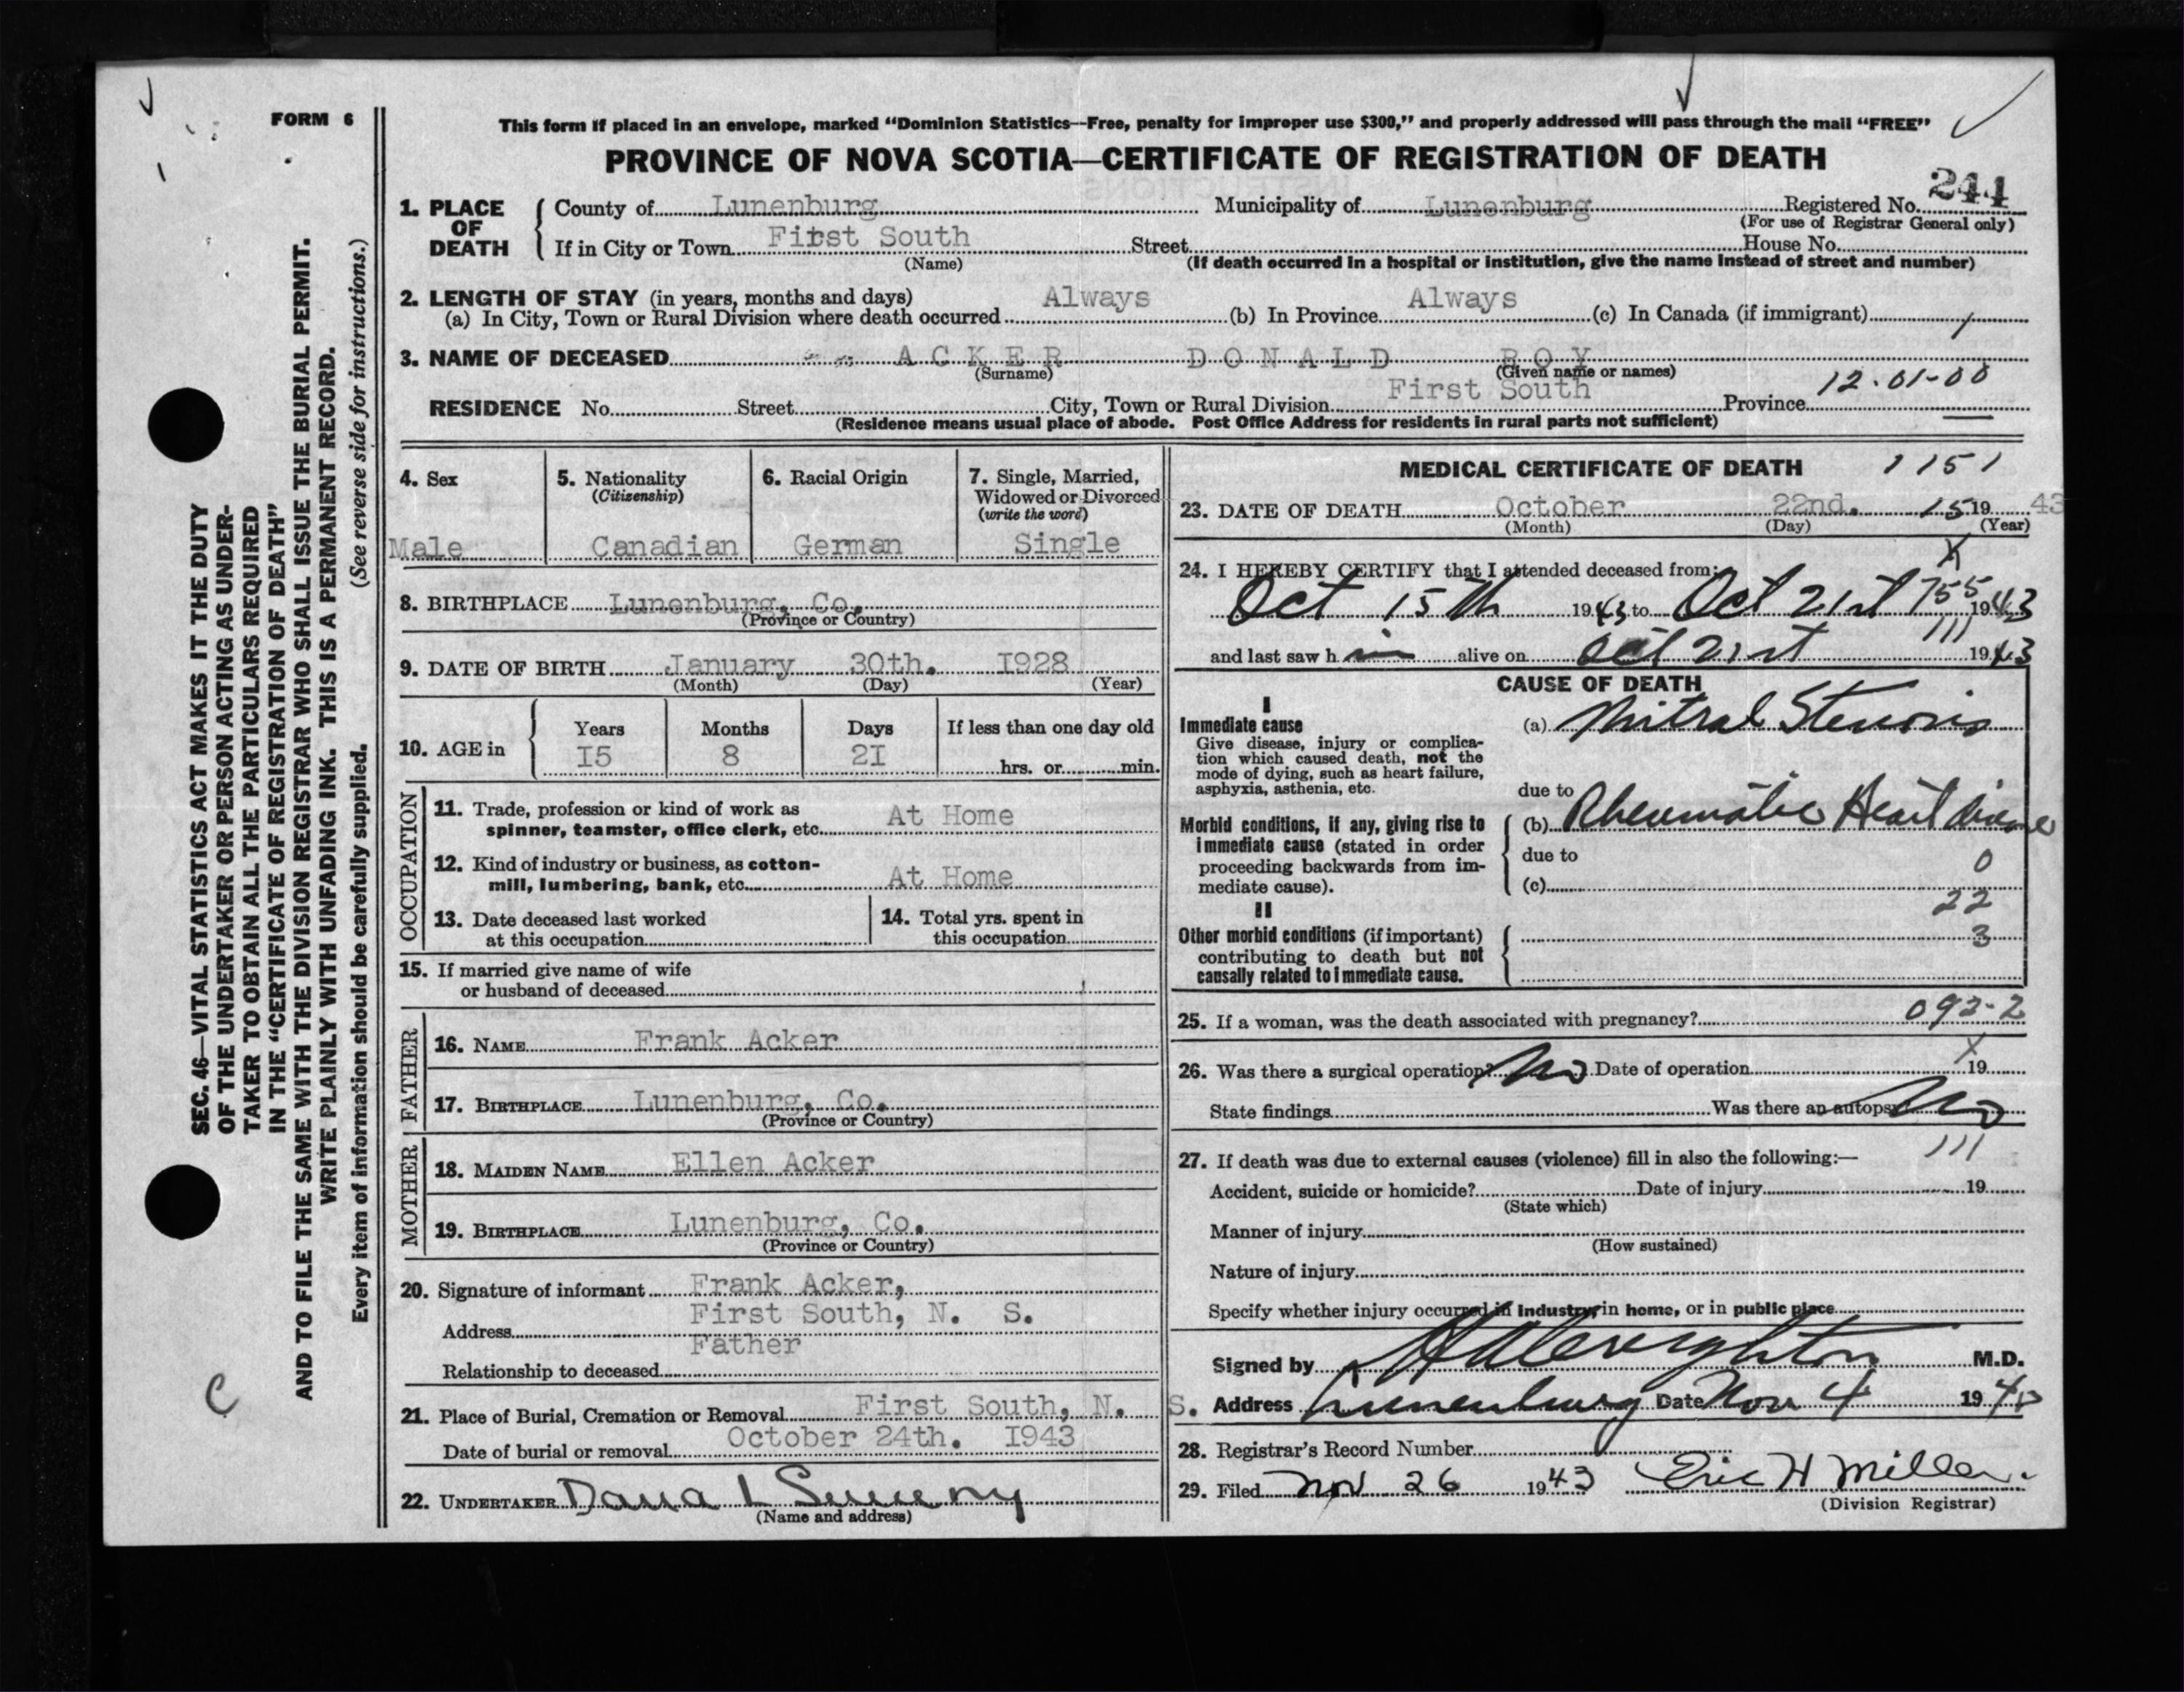 FORM 6
This form if placed in an envelope, marked “Dominion Statistics—Free, penalty for improper use $300,” and properly addressed will pass through the mail “FREE”
PROVINCE OF NOVA SCOTIA—CERTIFICATE OF REGISTRATION OF DEATH
244
1. PLACE OF DEATH
County of Lunenburg Municipality of Lunenburg Registered No.
(For use of Registrar General only)
If in City or Town First South Street House No.
(Name) (If death occurred in a hospital or institution, give the name instead of street and number)
2. LENGTH OF STAY (in years, months and days)
(a) In City, Town or Rural Division where death occurred Always (b) In Province Always (c) In Canada (if immigrant)
3. NAME OF DECEASED ACKER DONALD ROY
(Surname) (Given name or names)
12-01-00
RESIDENCE No. Street City, Town or Rural Division First South Province
(Residence means usual place of abode. Post Office Address for residents in rural parts not sufficient)
4. Sex
Male
5. Nationality
(Citizenship)
Canadian
6. Racial Origin
German
7. Single, Married,
Widowed or Divorced
(write the word)
Single
8. BIRTHPLACE Lunenburg, Co.
(Province or Country)
9. DATE OF BIRTH January 30th. I928
(Month) (Day) (Year)
10. AGE in
Years Months Days If less than one day old
I5 8 2I hrs. or min.
OCCUPATION
11. Trade, profession or kind of work as
spinner, teamster, office clerk, etc. At Home
12. Kind of industry or business, as cotton-
mill, lumbering, bank, etc. At Home
13. Date deceased last worked
at this occupation
14. Total yrs. spent in
this occupation
15. If married give name of wife
or husband of deceased
FATHER
16. NAME Frank Acker
17. BIRTHPLACE Lunenburg, Co.
(Province or Country)
MOTHER
18. MAIDEN NAME Ellen Acker
19. BIRTHPLACE Lunenburg, Co.
(Province or Country)
20. Signature of informant Frank Acker,
Address First South, N. S.
Relationship to deceased Father
21. Place of Burial, Cremation or Removal First South, N. S.
Date of burial or removal October 24th. I943
22. UNDERTAKER Dana L Sweeny
(Name and address)
MEDICAL CERTIFICATE OF DEATH 1151
23. DATE OF DEATH October 22nd. 15 19 43
(Month) (Day) (Year)
X
24. I HEREBY CERTIFY that I attended deceased from:
Oct 15th 1943 to Oct 21st 755 1943
111
and last saw him alive on Oct 21st 1943
CAUSE OF DEATH
I
Immediate cause
Give disease, injury or complica-
tion which caused death, not the
mode of dying, such as heart failure,
asphyxia, asthenia, etc.
(a) Mitral Stenosis
due to
Morbid conditions, if any, giving rise to
immediate cause (stated in order
proceeding backwards from im-
mediate cause).
(b) Rheumatic Heart disease
due to
0
(c)
22
II
Other morbid conditions (if important)
contributing to death but not
causally related to immediate cause.
3
092-2
25. If a woman, was the death associated with pregnancy?
X
26. Was there a surgical operation? No Date of operation 19
State findings Was there an autopsy No
111
27. If death was due to external causes (violence) fill in also the following:—
Accident, suicide or homicide? Date of injury 19
(State which)
Manner of injury
(How sustained)
Nature of injury
Specify whether injury occurred in industry, in home, or in public place
Signed by Creighton M.D.
Address Lunenburg Date Nov 4 1943
28. Registrar's Record Number
29. Filed Nov 26 1943 Eric H Miller.
(Division Registrar)
SEC. 46—VITAL STATISTICS ACT MAKES IT THE DUTY
OF THE UNDERTAKER OR PERSON ACTING AS UNDER-
TAKER TO OBTAIN ALL THE PARTICULARS REQUIRED
IN THE “CERTIFICATE OF REGISTRATION OF DEATH”
AND TO FILE THE SAME WITH THE DIVISION REGISTRAR WHO SHALL ISSUE THE BURIAL PERMIT.
WRITE PLAINLY WITH UNFADING INK. THIS IS A PERMANENT RECORD.
Every item of information should be carefully supplied. (See reverse side for instructions.)
C